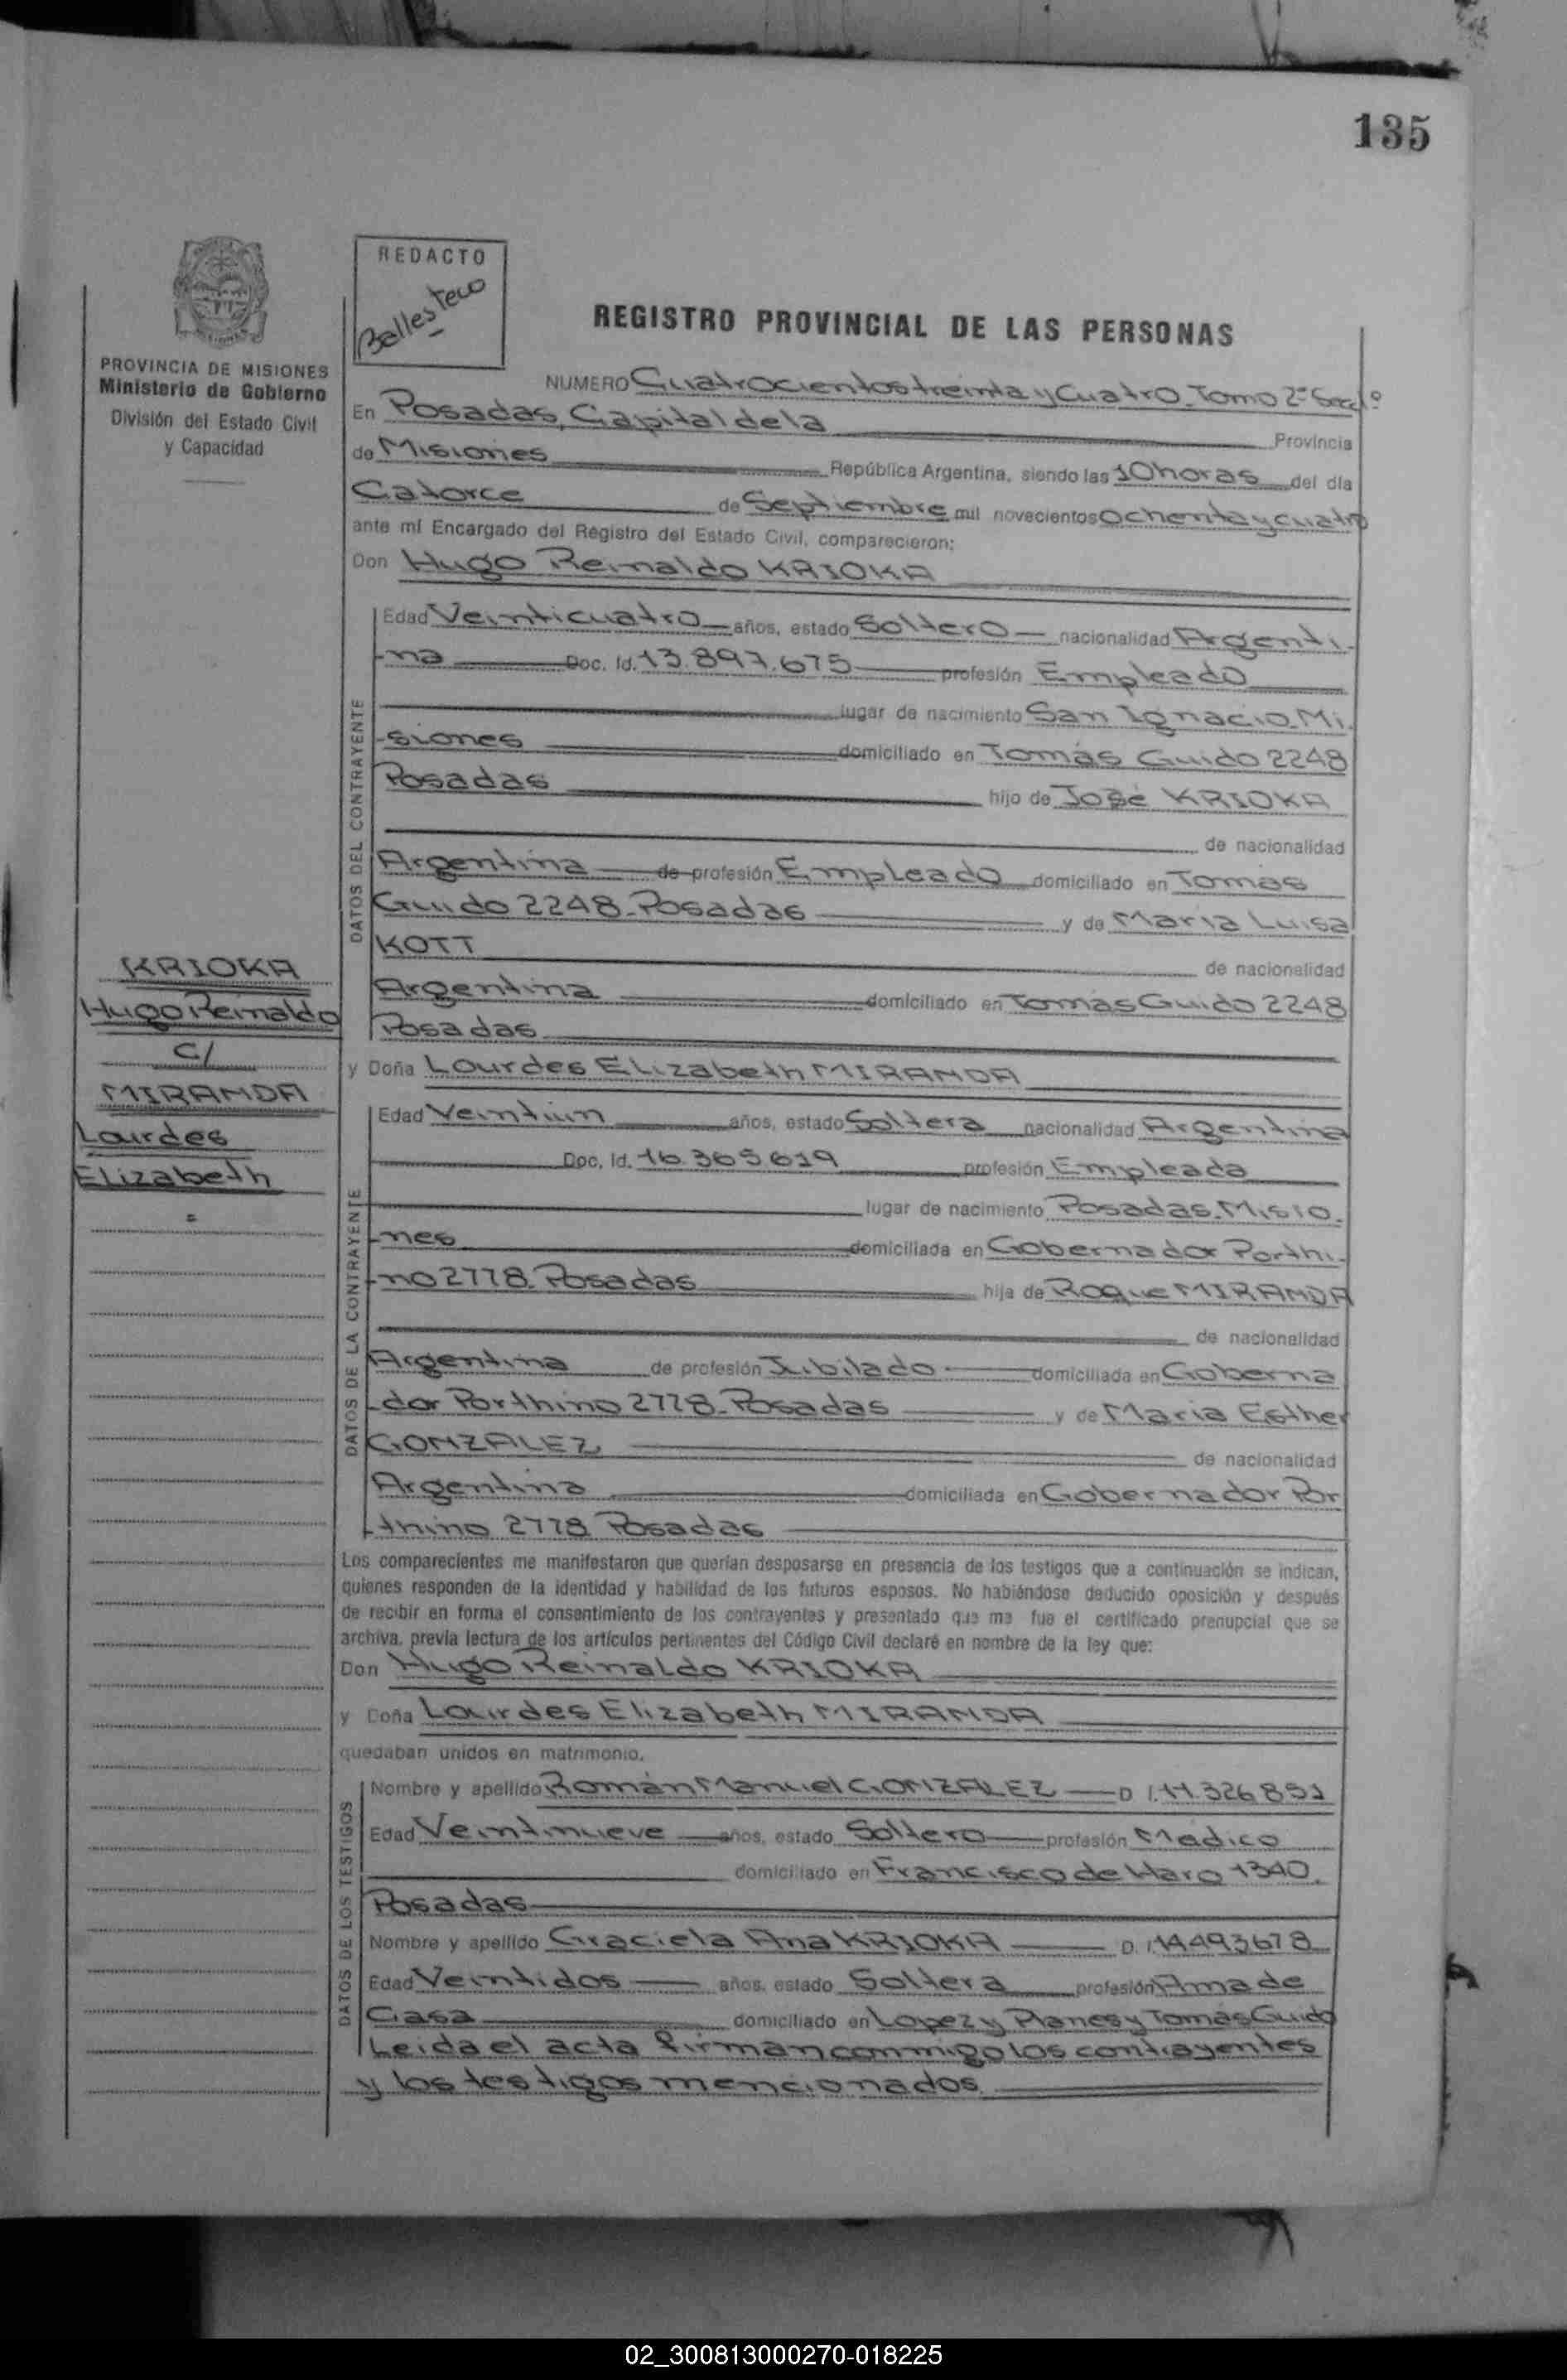 135
REDACTO
Ballesteco
PROVINCIA DE MISIONES
Ministerio de Gobierno
División del Estado Civil
y Capacidad
REGISTRO PROVINCIAL DE LAS PERSONAS
NUMERO Cuatrocientos treinta y Cuatro. Tomo 2º Secc 1º
En Posadas, Capital de la Provincia
de Misiones República Argentina, siendo las 10 horas del día
Catorce de Septiembre mil novecientos ochenta y cuatro
ante mí Encargado del Registro del Estado Civil, comparecieron:
Don Hugo Reinaldo KRIOKA
DATOS DEL CONTRAYENTE
Edad Veinticuatro años, estado Soltero nacionalidad Argenti-
-na Doc. Id. 13.897.675 profesión Empleado
lugar de nacimiento San Ignacio. Mi-
-siones domiciliado en Tomás Guido 2248
Posadas hijo de José KRIOKA
de nacionalidad
Argentina de profesión Empleado domiciliado en Tomás
Guido 2248. Posadas y de María Luisa
KOTT de nacionalidad
Argentina domiciliado en Tomás Guido 2248
Posadas
KRIOKA
Hugo Reinaldo
c/
MIRANDA
Lourdes
Elizabeth
=
y Doña Lourdes Elizabeth MIRANDA
DATOS DE LA CONTRAYENTE
Edad Veintiún años, estado Soltera nacionalidad Argentina
Doc. Id. 16.365.619 profesión Empleada
lugar de nacimiento Posadas. Misio-
-nes domiciliada en Gobernador Porthi-
-no 2778. Posadas hija de Roque MIRANDA
de nacionalidad
Argentina de profesión Jubilado domiciliada en Goberna
-dor Porthino 2778. Posadas y de María Esther
GONZALEZ de nacionalidad
Argentina domiciliada en Gobernador Por
-thino 2778 Posadas
Los comparecientes me manifestaron que querían desposarse en presencia de los testigos que a continuación se indican,
quienes responden de la identidad y habilidad de los futuros esposos. No habiéndose deducido oposición y después
de recibir en forma el consentimiento de los contrayentes y presentado que me fue el certificado prenupcial que se
archiva, previa lectura de los artículos pertinentes del Código Civil declaré en nombre de la ley que:
Don Hugo Reinaldo KRIOKA
y Doña Lourdes Elizabeth MIRANDA
quedaban unidos en matrimonio.
DATOS DE LOS TESTIGOS
Nombre y apellido Román Manuel GONZALEZ D. I. 11.326.851
Edad Veintinueve años, estado Soltero profesión Médico
domiciliado en Francisco de Haro 1340.
Posadas
Nombre y apellido Graciela Ana KRIOKA D. I. 14.493.678
Edad Veintidos años, estado Soltera profesión Ama de
Casa domiciliado en Lopez y Planes y Tomás Guido
Leida el acta firman conmigo los contrayentes
y los testigos mencionados.
02_300813000270-018225